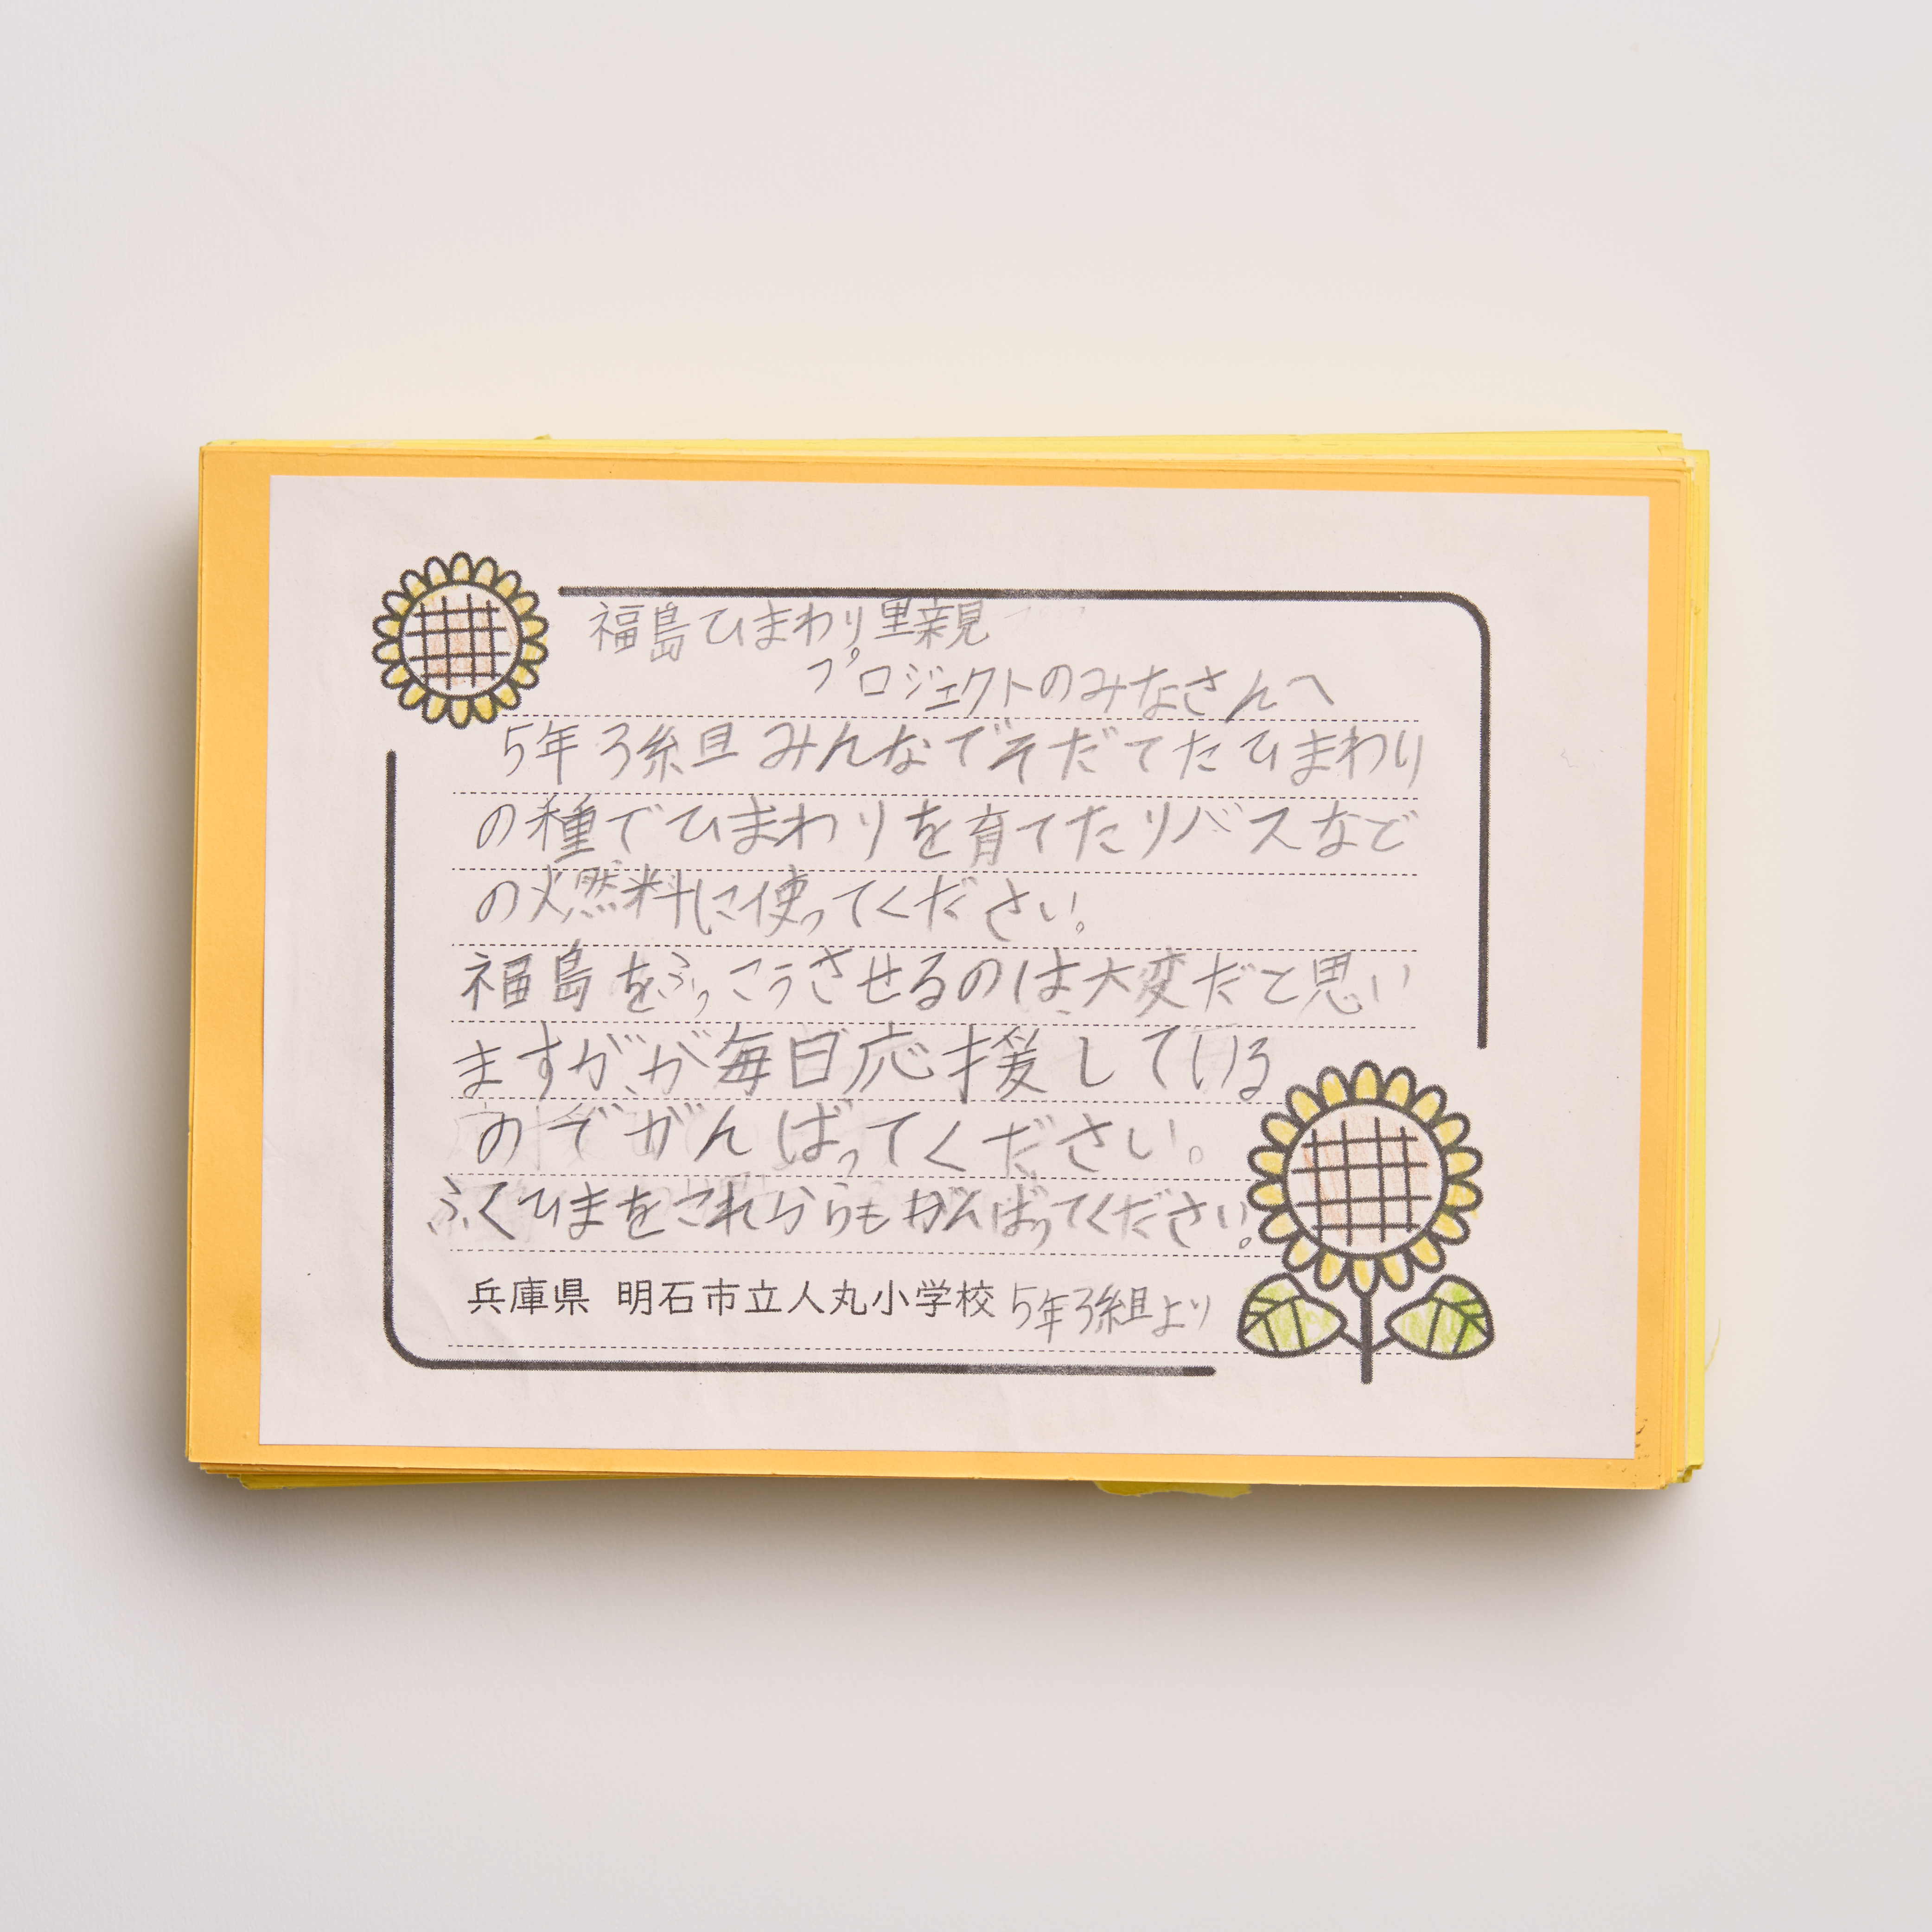 福島ひまわり里親
プロジェクトのみなさんへ
5年3組みんなでそだてたひまわり
の種でひまわりを育てたりバスなど
の燃料に使ってください。
福島をふっこうさせるのは大変だと思い
ますがが毎日応援している
のでがんばってください。
ふくひまをこれからもがんばってください。
兵庫県 明石市立人丸小学校5年3組より